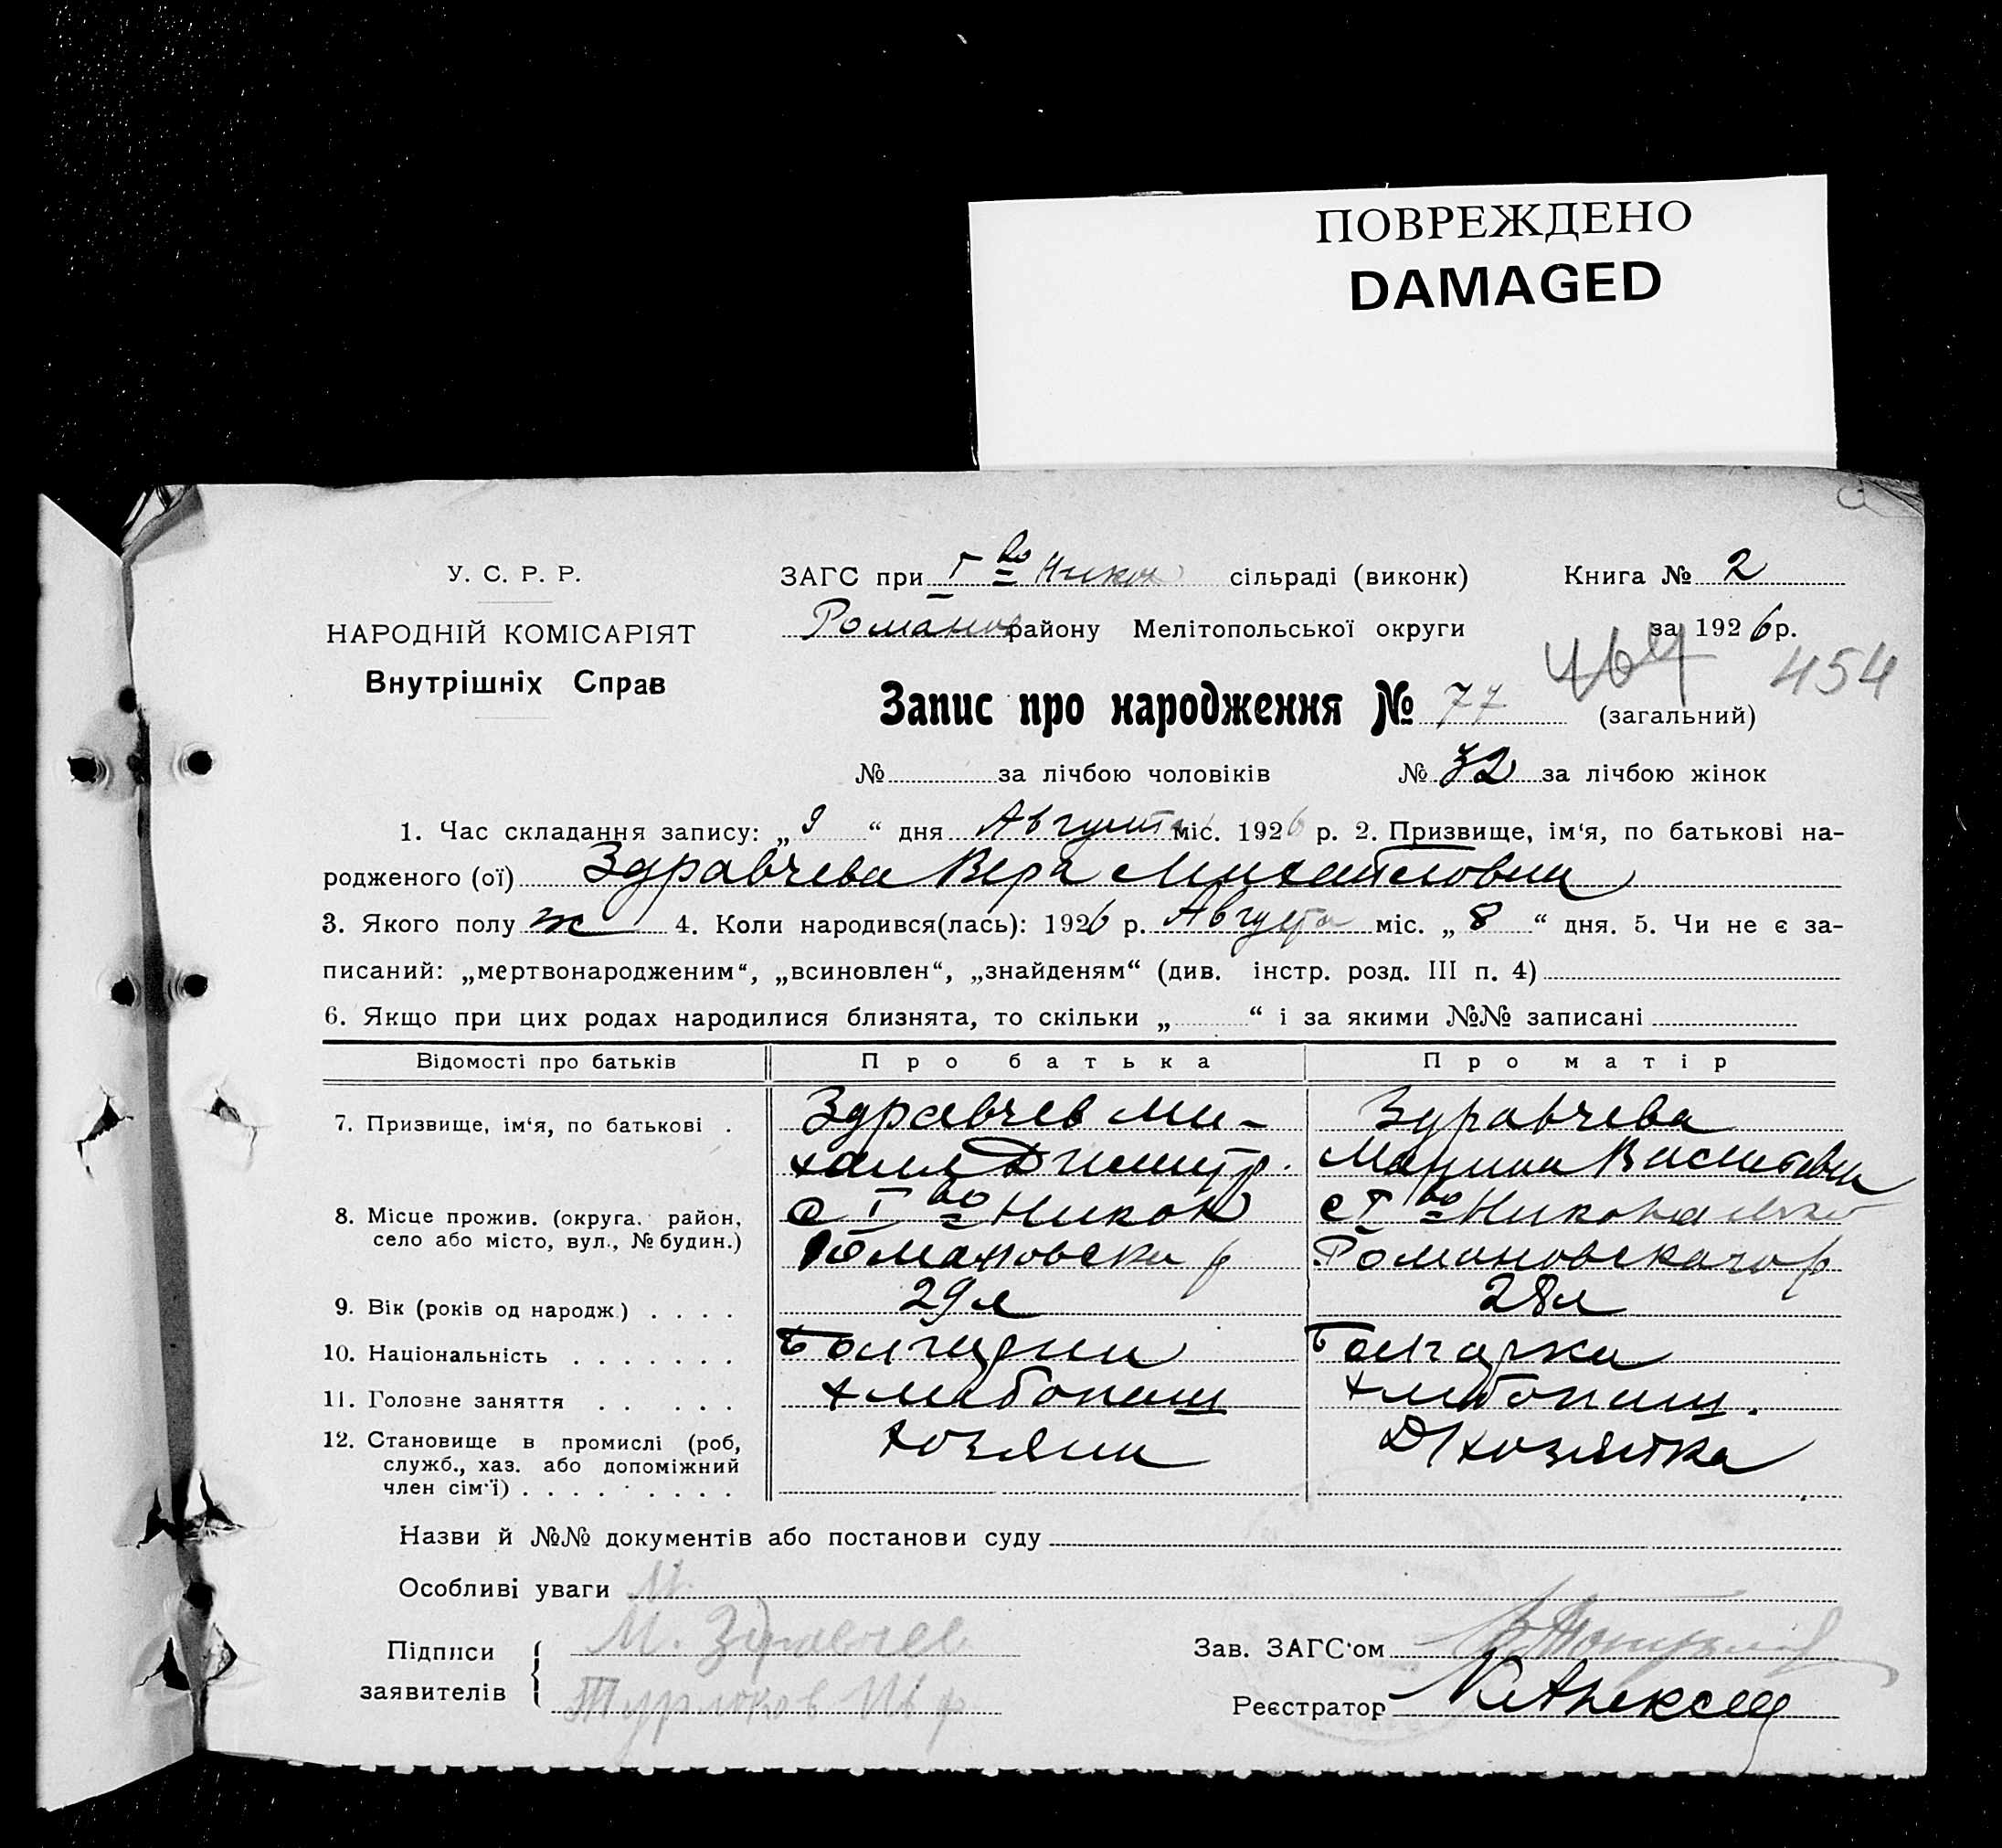 ПОВРЕЖДЕНО
DAMAGED
У. С. Р. Р.
НАРОДНІЙ КОМІСАРІЯТ
Внутрішніх Справ
ЗАГС при I во Никон сільраді (виконк) Книга № 2
Романов району Мелітопольської округи за 1926 р.
464 454
Запис про народження № 77 (загальний)
№ за лічбою чоловіків № 32 за лічбою жінок
1. Час складання запису: „9“ дня Августа міс. 1926 р. 2. Призвище, ім‘я, по батькові на-
родженого (ої) Здравчева Вера Михайловна
3. Якого полу ж 4. Коли народився(лась): 1926 р. Августа міс. „8“ дня. 5. Чи не є за-
писаний: „мертвонародженим“, „всиновлен“, „знайденям“ (див. інстр. розд. III п. 4)
6. Якщо при цих родах народилися близнята, то скільки „ “ і за якими №№ записані
Відомості про батьків Про батька Про матір
7. Призвище, ім‘я, по батькові . Здравчев Ми- Здравчева
хаил Димитр. Марина Василевна
8. Місце прожив. (округа, район, с I во Никон с I во Николаевко
село або місто, вул., № будин.) Романовска р Романовскаго р
9. Вік (років од народж.) . . . . 29 л 28 л
10. Національність . . . . . . . Болгарин Болгарка
11. Головне заняття . . . . . хлибопаш хлибопаш.
12. Становище в промислі (роб, хозяин Д/хозяйка
служб., хаз. або допоміжний
член сім‘ї) . . . . . . . . .
Назви й №№ документів або постанови суду
Особливі уваги
Підписи М. Здравчев Зав. ЗАГС‘ом
заявителів Турлаков Реєстратор